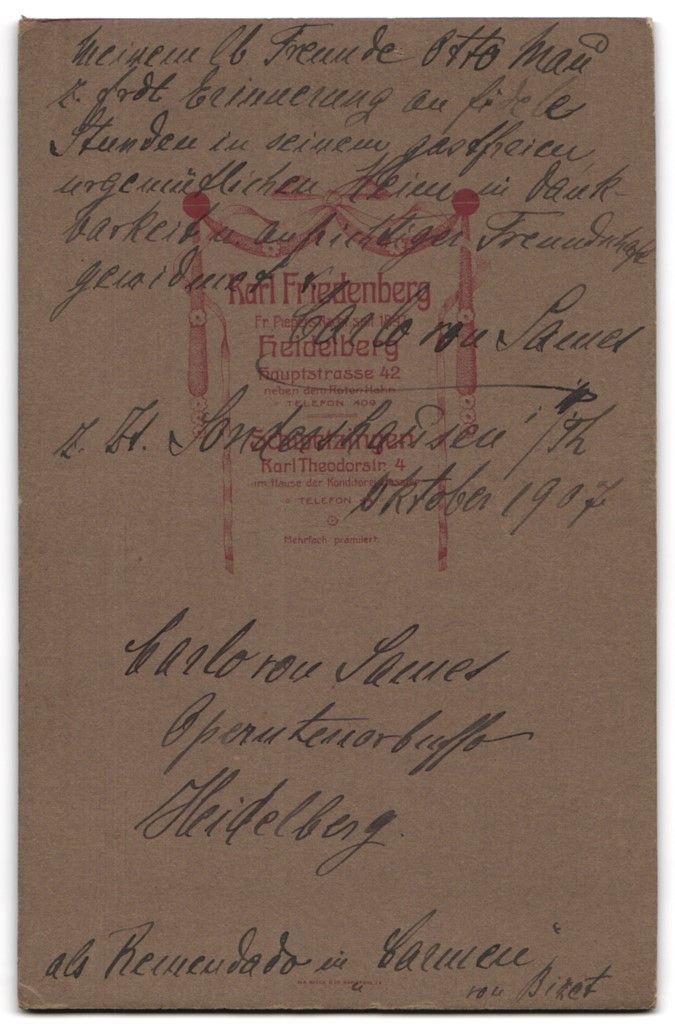 Meinem lb Freunde Otto Mau
z. frdl Erinnerung an fidele
Stunden in seinem gastfreien,
urgemütlichen Heim in Dank-
barkeit u aufrichtiger Freundschaft
gewidmet v.
Carlo von Sames
z. Zt. Sondershausen i/Th
Oktober 1907
Karl Friedenberg
Heidelberg
Hauptstrasse 42
neben dem Roten Hahn
TELEFON 409
Schwetzingen
Karl Theodorstr. 4
im Hause der Konditorei
TELEFON
Mehrfach prämiiert.
Carlo von Sames
Operntenorbuffo
Heidelberg.
als Remendado in „Carmen“
von Bizet